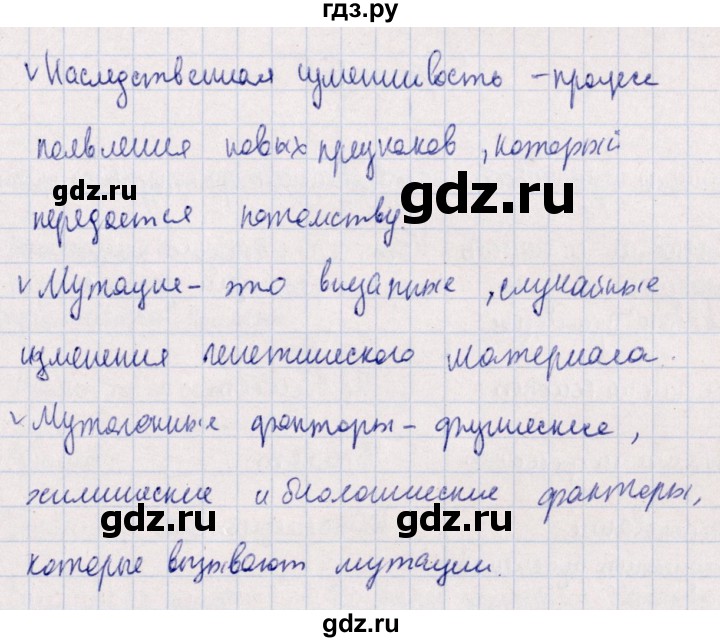 гдз.ру
√ Наследственная изменчивость - процесс
появления новых признаков, который
gdz.ru
gdz.ru
передается потомству.
√ Мутация - это внезапные, случайные
изменения генетического материала.
√ Мутагенные факторы - физические,
химические и биологические факторы,
gdz.ru
gdz.ru
которые вызывают мутации.
gdz.ru